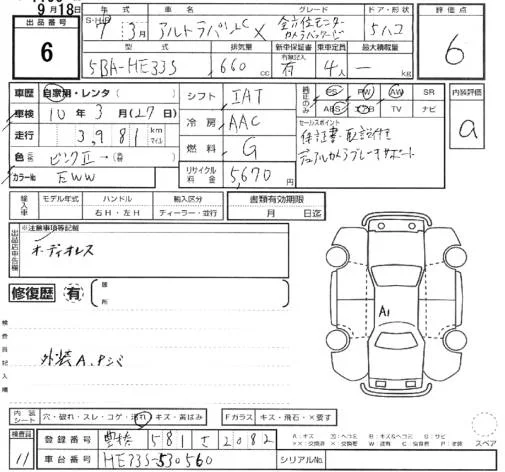 9月18日
出品番号
6
S・H・R
年式
車名
グレード
ドア・形状
評価点
7 3月
アルトラパンLC X
全方位モニター
カメラパッケージ
5ハコ
6
型式
排気量
新車保証書
乗車定員
最大積載量
5BA-HE33S
660 cc
有無記入
有
4人
― kg
車歴
自家用・レンタ
車検
10年3月(27日)
走行
3,981 km
マイル
色
ピンクⅡ→(春)
カラー№
EWW
シフト
IAT
冷房
AAC
燃料
G
リサイクル
料金
5,670円
純正のみ
PS
PW
AW
SR
ABS
エアB
TV
ナビ
セールスポイント
保証書・取説付き
デュアルカメラブレーキサポート
内装評価
a
輸入車
モデル年式
ハンドル
右H・左H
輸入区分
ディーラー・並行
書類有効期限
月 日迄
出品店申告欄
※注意事項等記載
オーディオレス
修復歴
有
箇所
検査員記入欄
外装A、Pシミ
A1
内装
シート
穴・破れ・スレ・コゲ・汚れ・キズ・黄ばみ
Fガラス
キズ・飛石・×要す
スペア
検査員
11
登録番号
豊橋 581 さ 2082
車台番号
HE33S-530560
シリアルNo.